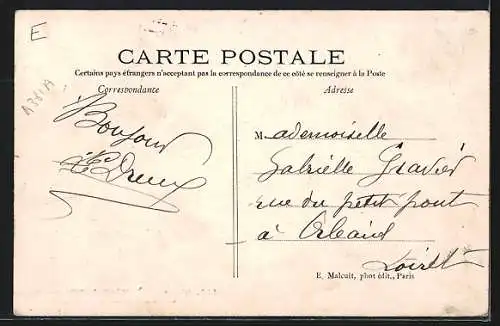 E
A381A
CARTE POSTALE
Certains pays étrangers n'acceptant pas la correspondance de ce côté se renseigner à la Poste
Correspondance
Adresse
Bonjour
Dreux
Mademoiselle
Gabrielle Gravier
rue du petit pont
à Orléans
Loiret
E. Malcuit, phot édit., Paris